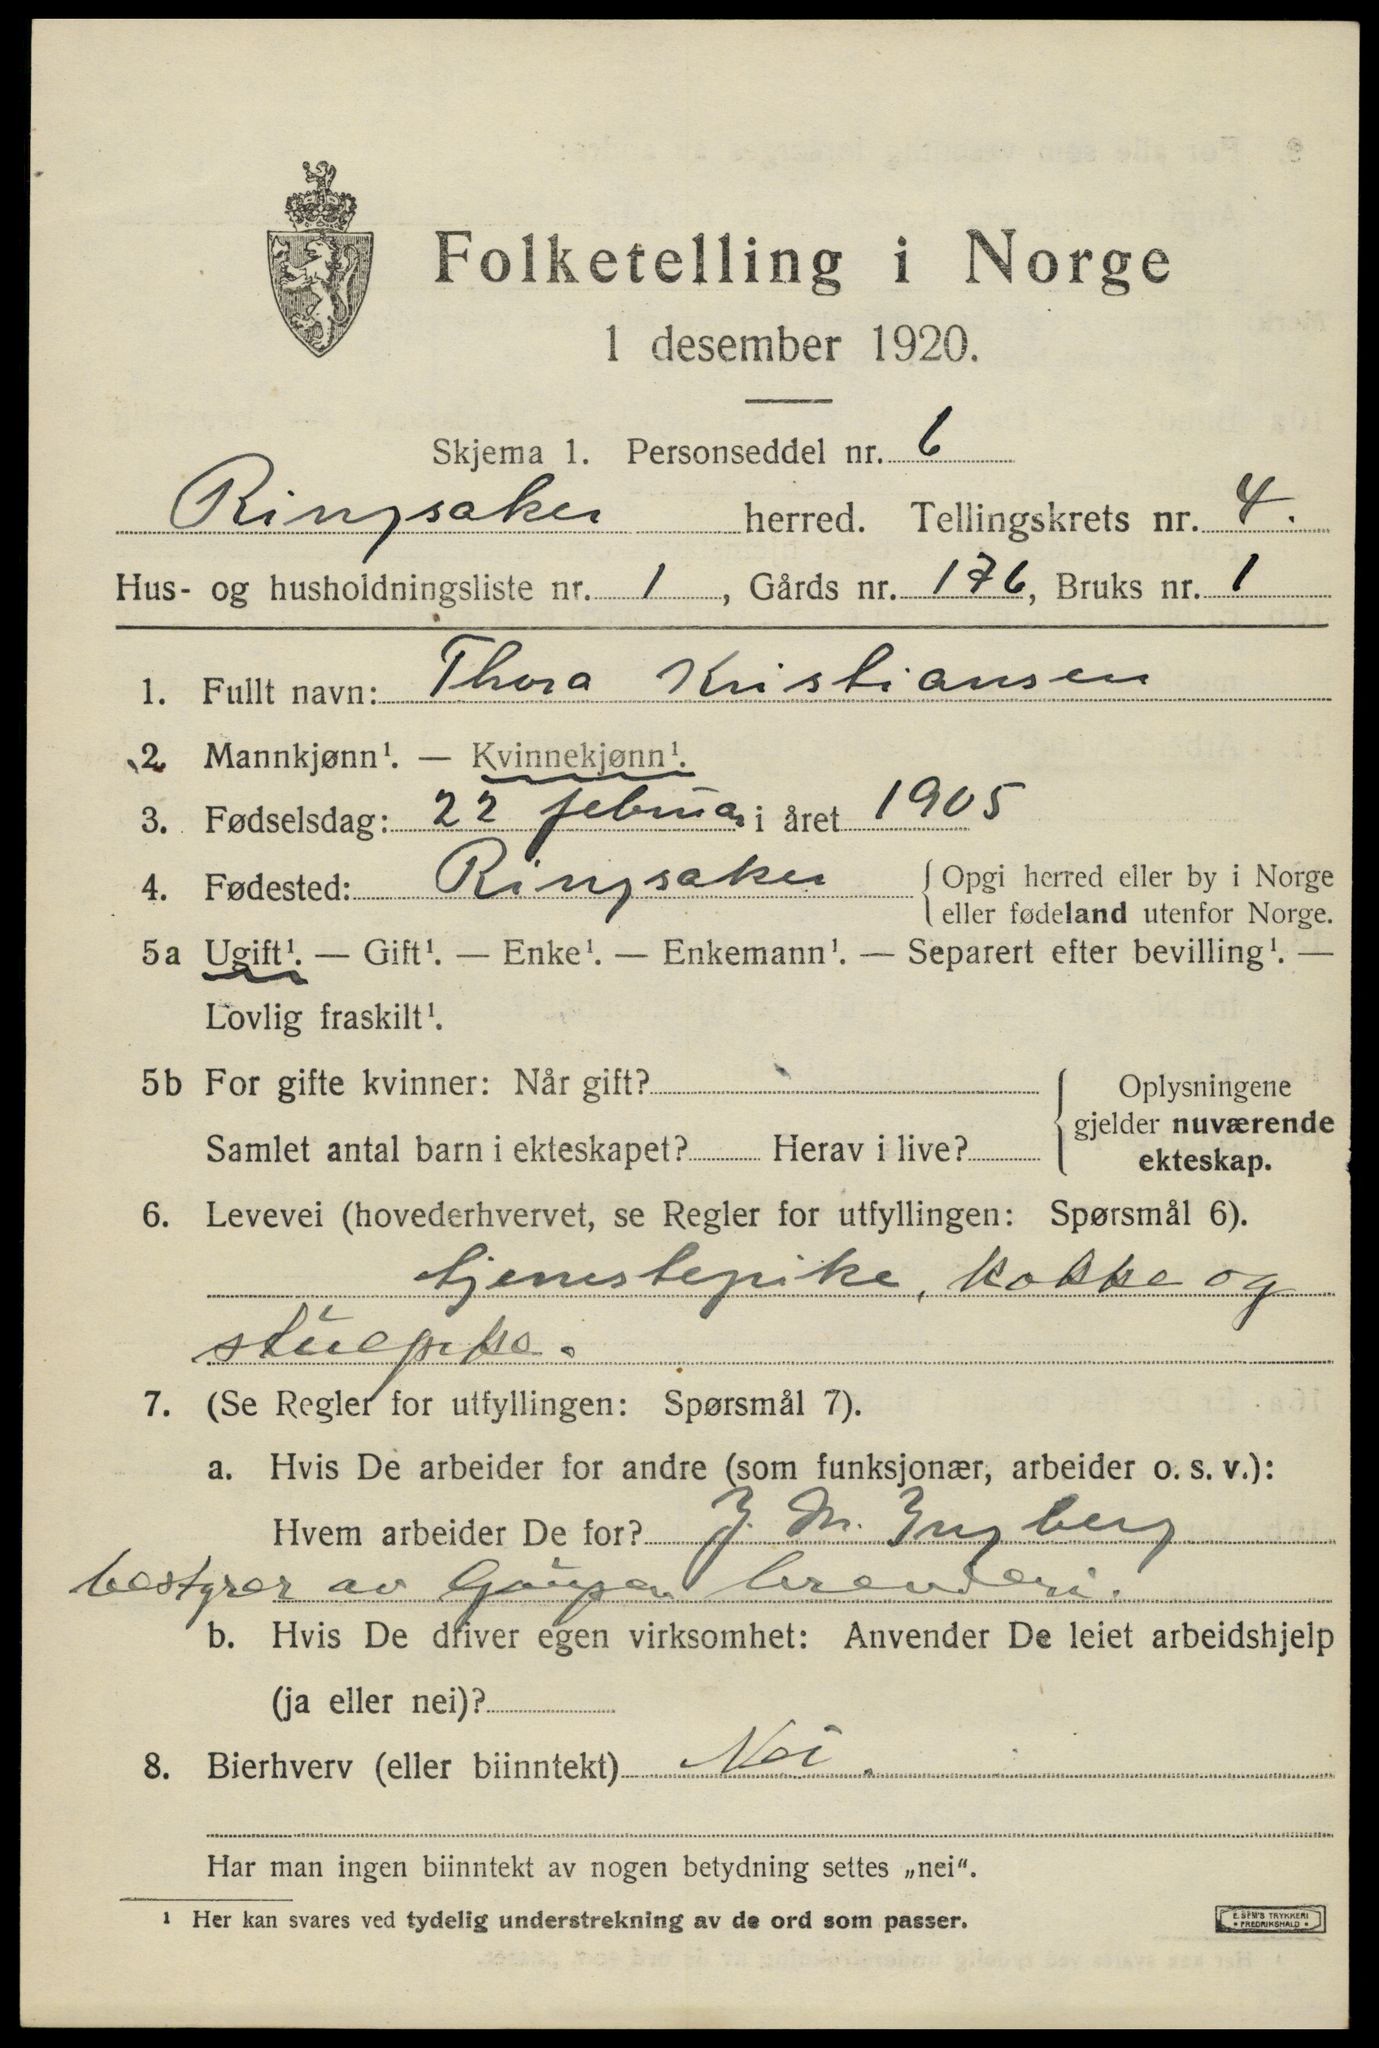 Folketelling i Norge
1 desember 1920.
Skjema 1. Personseddel nr. 6
Ringsaker herred. Tellingskrets nr. 4.
Hus- og husholdningsliste nr. 1, Gårds nr. 176, Bruks nr. 1
1. Fullt navn: Thora Kristiansen
2. Mannkjønn¹. — Kvinnekjønn¹.
3. Fødselsdag: 22 februar i året 1905
4. Fødested: Ringsaker {Opgi herred eller by i Norge
eller fødeland utenfor Norge.
5a Ugift¹. — Gift¹. — Enke¹. — Enkemann¹. — Separert efter bevilling¹. —
Lovlig fraskilt¹.
5b For gifte kvinner: Når gift? { Oplysningene
gjelder nuværende
Samlet antal barn i ekteskapet? Herav i live? ekteskap.
6. Levevei (hovederhvervet, se Regler for utfyllingen: Spørsmål 6).
tjenestepike, kokke og
stuepike.
7. (Se Regler for utfyllingen: Spørsmål 7).
a. Hvis De arbeider for andre (som funksjonær, arbeider o. s. v.):
Hvem arbeider De for? J. M. Ingberg
bestyrer av Gaupen brenderi.
b. Hvis De driver egen virksomhet: Anvender De leiet arbeidshjelp
(ja eller nei)?
8. Bierhverv (eller biinntekt) Nei.
Har man ingen biinntekt av nogen betydning settes „nei“.
¹ Her kan svares ved tydelig understrekning av de ord som passer.
E. SEM'S TRYKKERI
FREDRIKSHALD